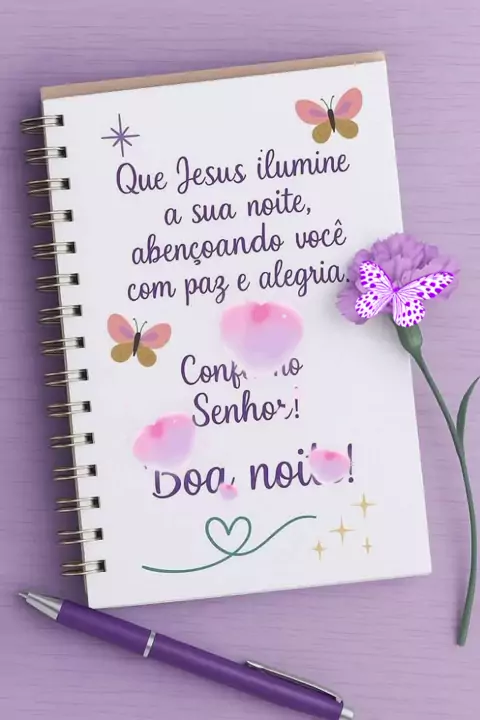 Que Jesus ilumine
a sua noite,
abençoando você
com paz e alegria.
Confie no
Senhor!
Boa noite!